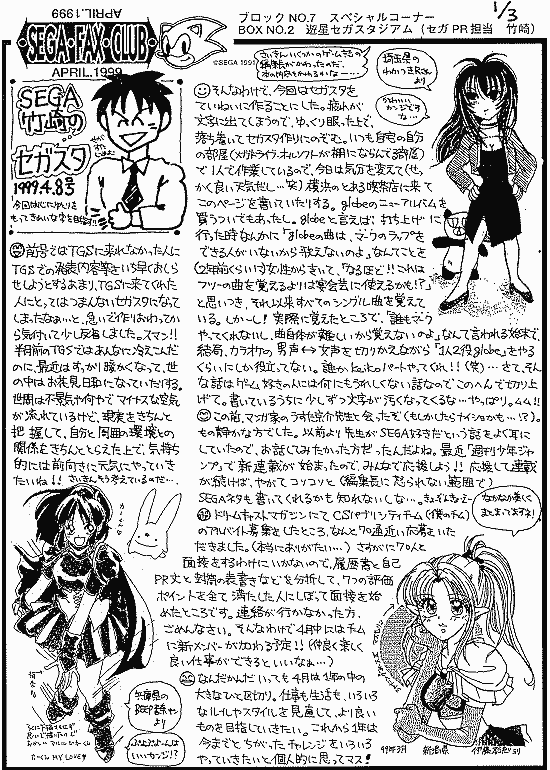 APRIL.1999
SEGA・FAX・CLUB
APRIL.1999
©SEGA 1991
ブロックNO.7 スペシャルコーナー
BOX NO.2 遊星セガスタジアム (セガPR担当 竹崎)
1/3
SEGA
竹崎の
セガスタ
1999.4.8号
埼玉県の
かわいい
カンジです
な…
そんなわけで、今回はセガスタを
ていねいに作ることにした。疲れが
文字に出てしまうので、ゆっくり眼った上で、
落ち着いてセガスタ作りにのぞむ。いつも自宅の自分
の部屋
で1人で作業しているので、今日は気分を変えて(せっ
かく良い天気だし…笑)横浜のとある喫茶店に来て
このページを書いていたりする。globeのニューアルバムを
買うついでもあった。globeと言えば、打ち上げに
行った時なんかに「globeの曲は、マークのラップを
できる人がいないから歌えないのよ。」なんてことを
(2年前くらいに)女性から言って、「なるほど!!これは
フツーの曲を覚えるよりは宴会芸に使えるかも!?」
と思いつき、それ以来すべてのシングル曲を覚えて
いる。しかーし!実際に覚えたところで、「誰もマーク
やってくれないし、曲自体が難しいから覚えないのよ」なんて言われる始末で、
結局、カラオケの男声↔女声を切りかえながら「1人2役globe」をやる
くらいにしか役立ってない。誰かkeikoのパートやってくれ!!(笑)…さて、そん
な話はゲーム好きの人には何にもうれしくない話なのでこのへんで切り上
げて。書いているうちに少しずつ文字が汚くなってくるな…やっぱり。ムム!!
この前、マンガ家のうすた京介先生と会ったぞ(もしかしたらナイショかも…!?)。
もの静かな方でした。以前より先生がSEGA好きだという話をよく耳に
していたので、お話してみたかった方だったんだよね。最近「週刊少年ジャ
ンプ」で新連載が始まったので、みんなで応援しよう!!応援して連載
が続けば、やがてコツコツと(編集長に怒られない範囲で)
SEGAネタも書いてくれるかも知れないしな…。
前号ではTGSに来れなかった人に
TGSでの発表内容等をいち早くお知ら
せしようとするあまり、TGSに来てくれた
人にとってはつまんないセガスタになって
しまったなぁ…と、急いで作りおわってか
ら気付いて少し反省しました。スマン!!
半月前のTGSではあんなに冷えこんだ
のに、最近はすっかり暖かくなって、世
の中はお花見日和になっていたりする。
世間は不景気や何やでマイナスな空気
が流れているけど、現実をきちんと
把握して、自分と周囲の環境との
関係をきちんととらえた上で、気持ち
的には前向きに元気にやっていき
たいね!!さいきんそう考えているのだ…。
ドリームキャストマガジンにてCSパブリシティチーム(僕のチーム)
のアルバイト募集をしたところ、なんと70通近い応募をいた
だきました。(本当にありがたい…)さすがに70人と
面接をするわけにいかないので、履歴書と自己
PR文と封筒の表書きなどを分析して、7つの評価
ポイントを全て満たした人にしぼって面接を始
めたところです。連絡が行かなかった方、
ごめんなさい。そんなわけで4月中にはチーム
に新メンバーが加わる予定!!(仲良く楽しく
良い仕事ができるといいなぁ…)
なんだかんだいっても4月は1年の中の
大きなひと区切り。仕事も生活も、いろいろ
なルールやスタイルを見直して、より良い
ものを目指していきたい。これから1年は
今までとちがったチャレンジをいろいろ
やっていきたいと個人的に思ってマス!
なかなか良くて
まとまってますな!
兵庫県の
より
いいカンジ!?
MY LOVE♥
99年3月
新潟県